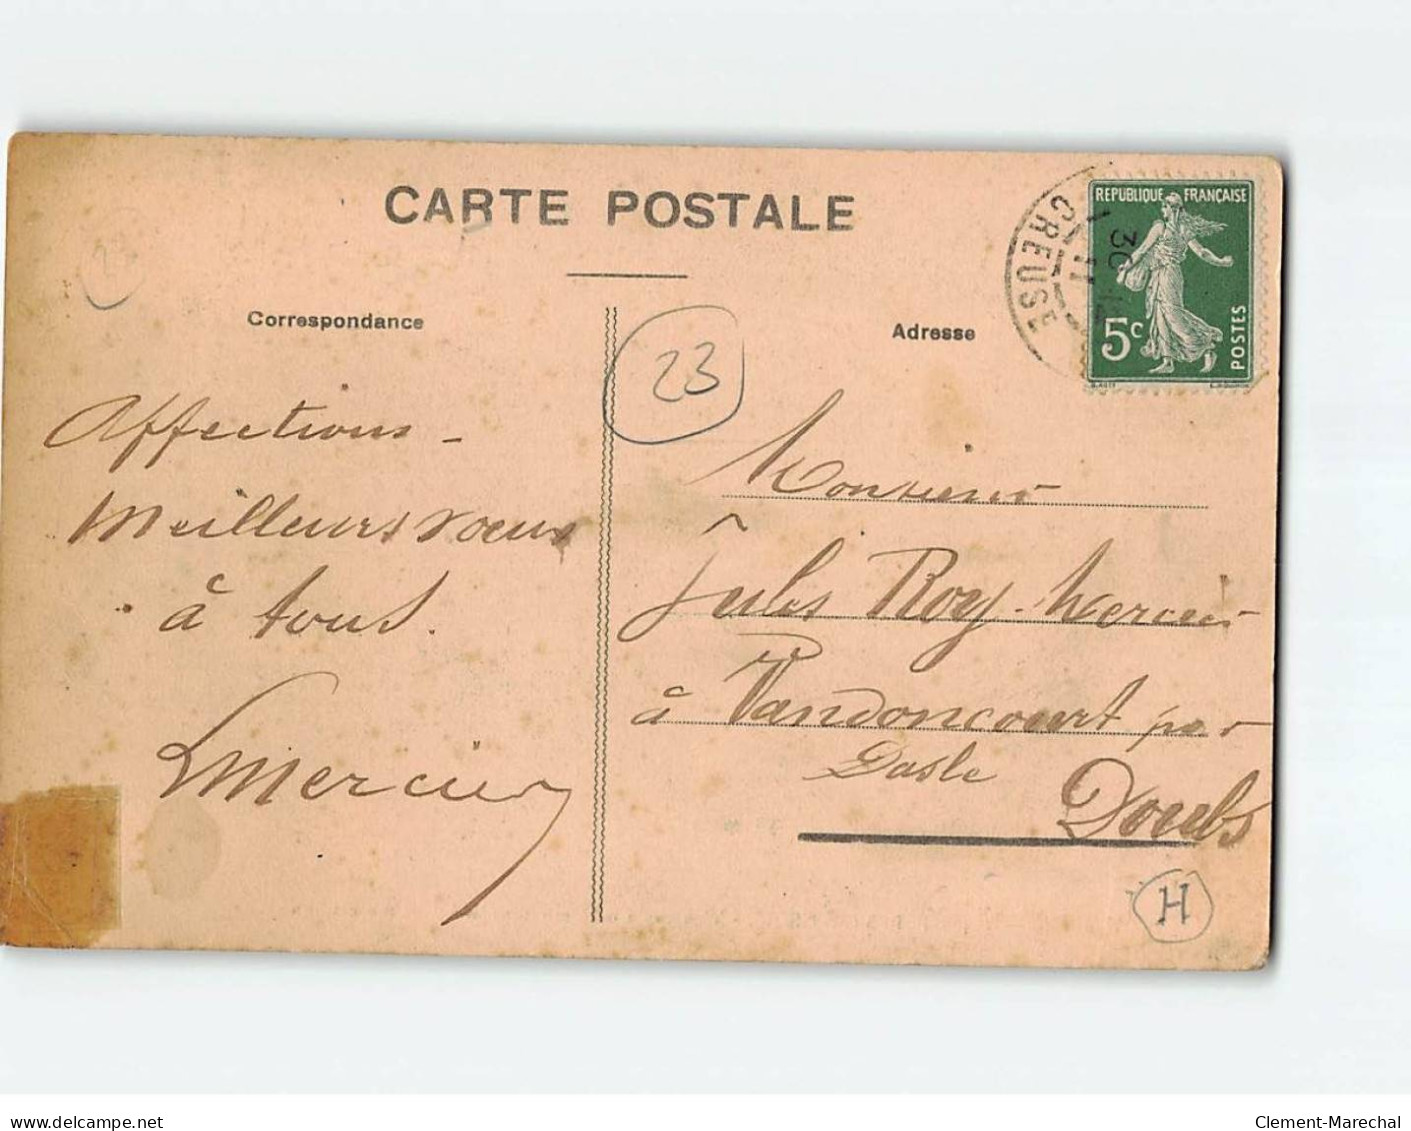 CARTE POSTALE
REPUBLIQUE FRANÇAISE
5c
POSTES
CREUSE
30
11
23
Correspondance
Adresse
23
Affections -
Meilleurs vœux
à tous.
LMercier
Monsieur
Jules Roy-Mercier
à Vandoncourt par
Dasle
Doubs
H
www.delcampe.net
Clement-Marechal